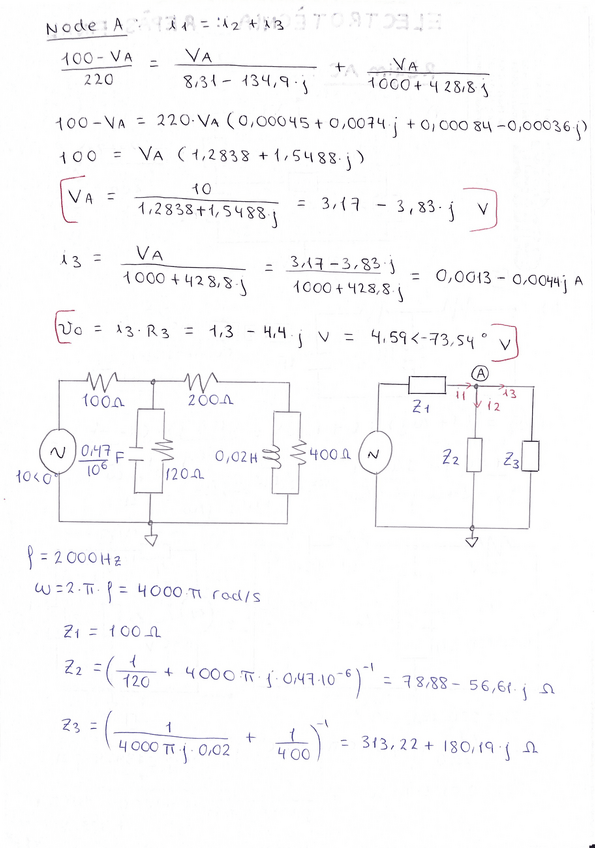 Node A: i1 = i2 + i3
100 - VA / 220 = VA / 8,31 - 134,9·j + VA / 1000 + 428,8·j
100 - VA = 220·VA (0,00045 + 0,0074·j + 0,00084 - 0,00036·j)
100 = VA (1,2838 + 1,5488·j)
VA = 10 / 1,2838 + 1,5488·j = 3,17 - 3,83·j V
i3 = VA / 1000 + 428,8·j = 3,17 - 3,83·j / 1000 + 428,8·j = 0,0013 - 0,0044j A
vo = i3·R3 = 1,3 - 4,4·j V = 4,59<-73,54° V
100Ω 200Ω
0,47 / 10⁶ F 120Ω 0,02H 400Ω
10<0°
Z1 i1 A i3
i2
Z2 Z3
f = 2000Hz
ω = 2·π·f = 4000·π rad/s
Z1 = 100 Ω
Z2 = (1/120 + 4000·π·j·0,47·10⁻⁶)⁻¹ = 78,88 - 56,61·j Ω
Z3 = (1 / 4000π·j·0,02 + 1/400)⁻¹ = 313,22 + 180,19·j Ω